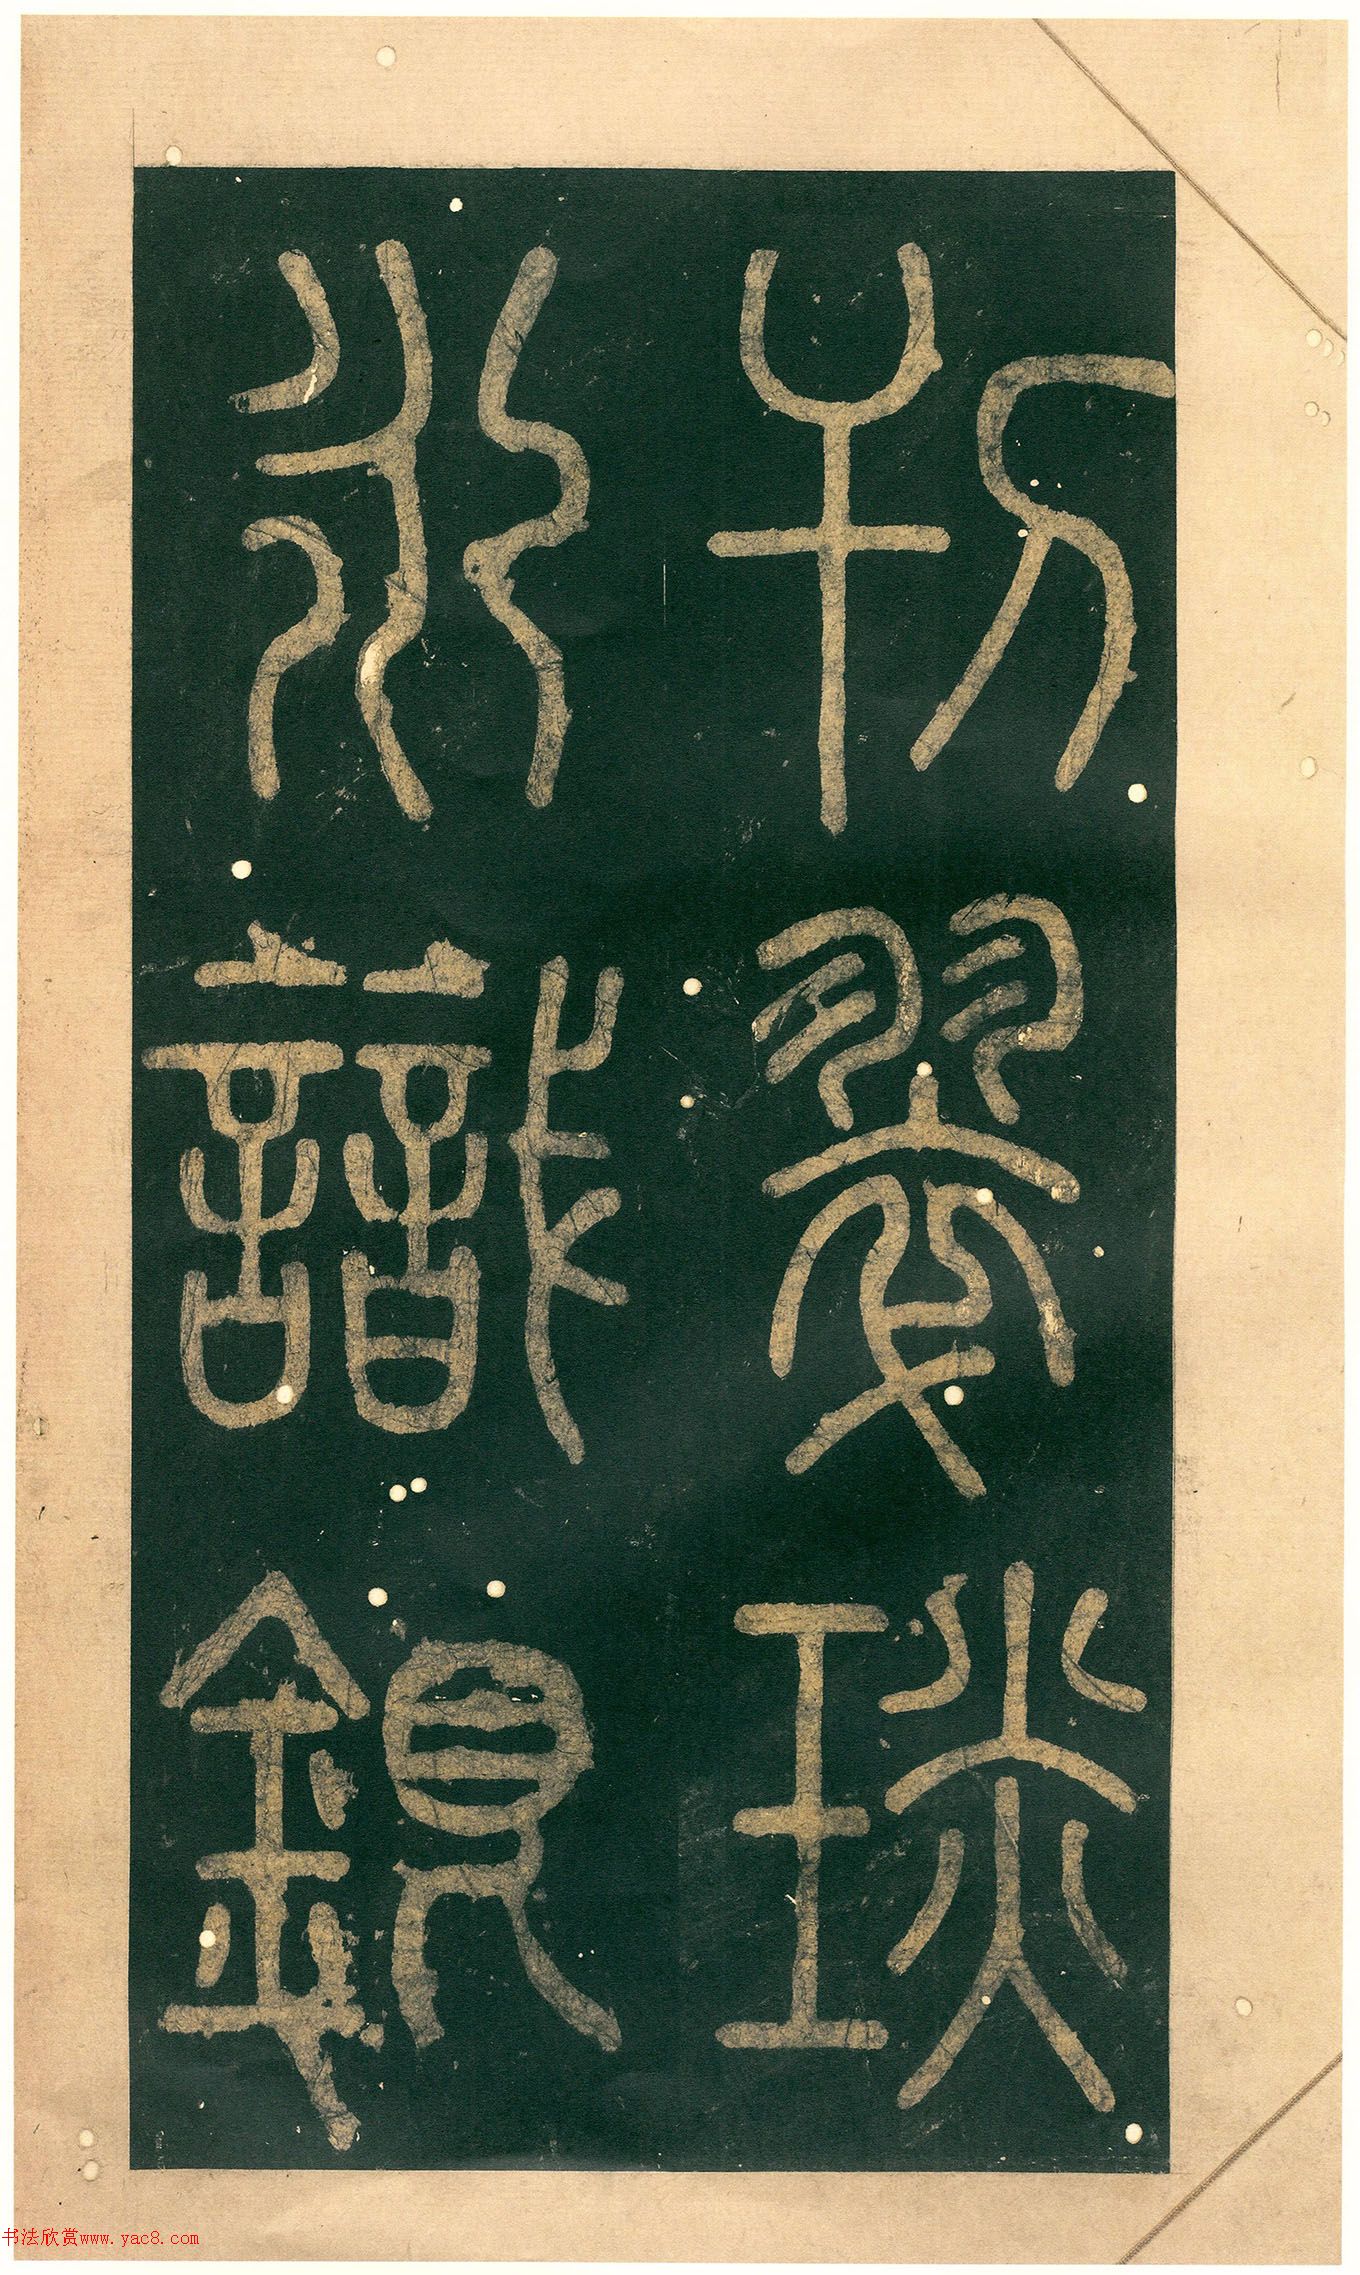 刊翠琰
永識銀
书法欣赏www.yac8.com